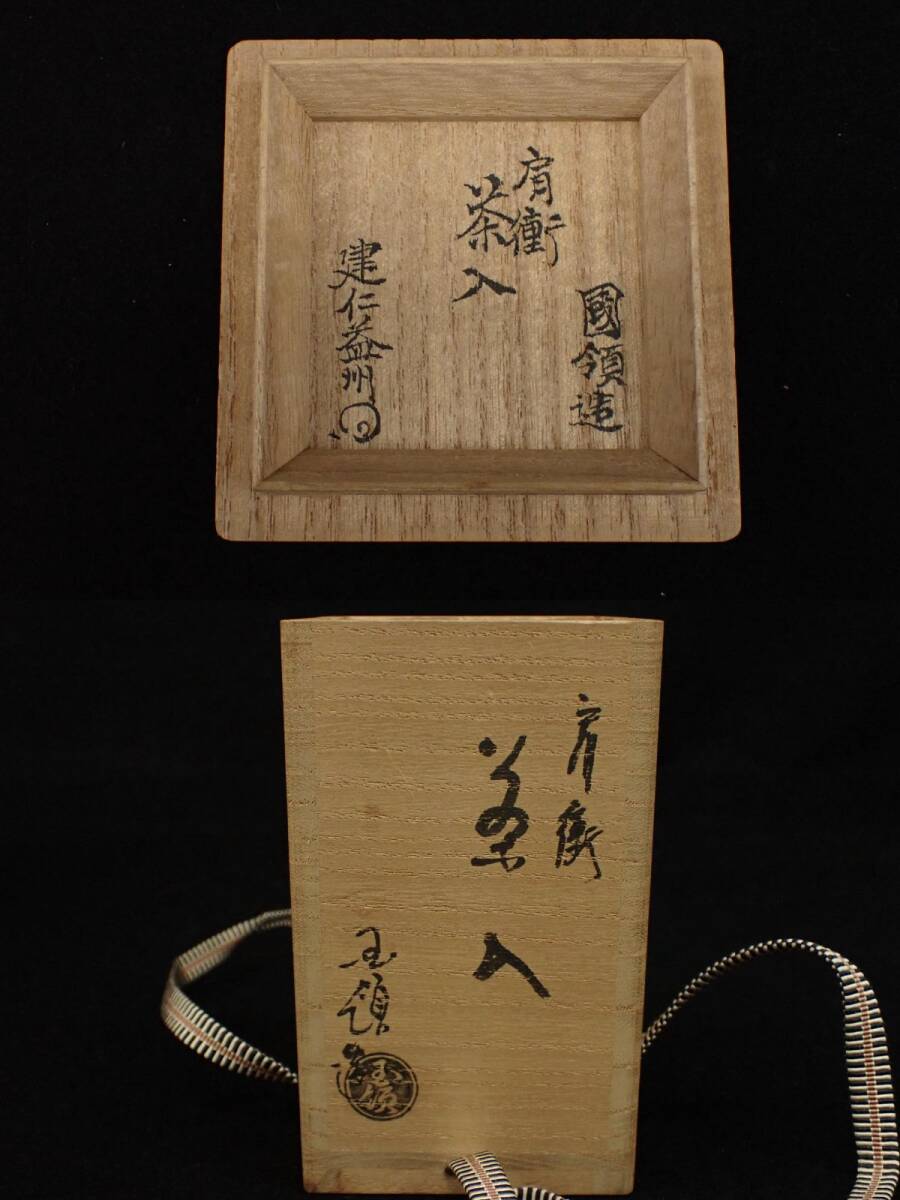 國領造
肩衝
茶入
建仁益州
肩衝
茶入
国領造
国領